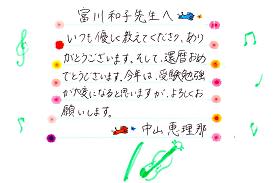 富川和子先生へ
いつも優しく教えてくださり、あり
がとうございます。そして、還暦おめ
でとうございます。今年は、受験勉強
が大変になると思いますが、よろしくお
願いします。
中山恵理那